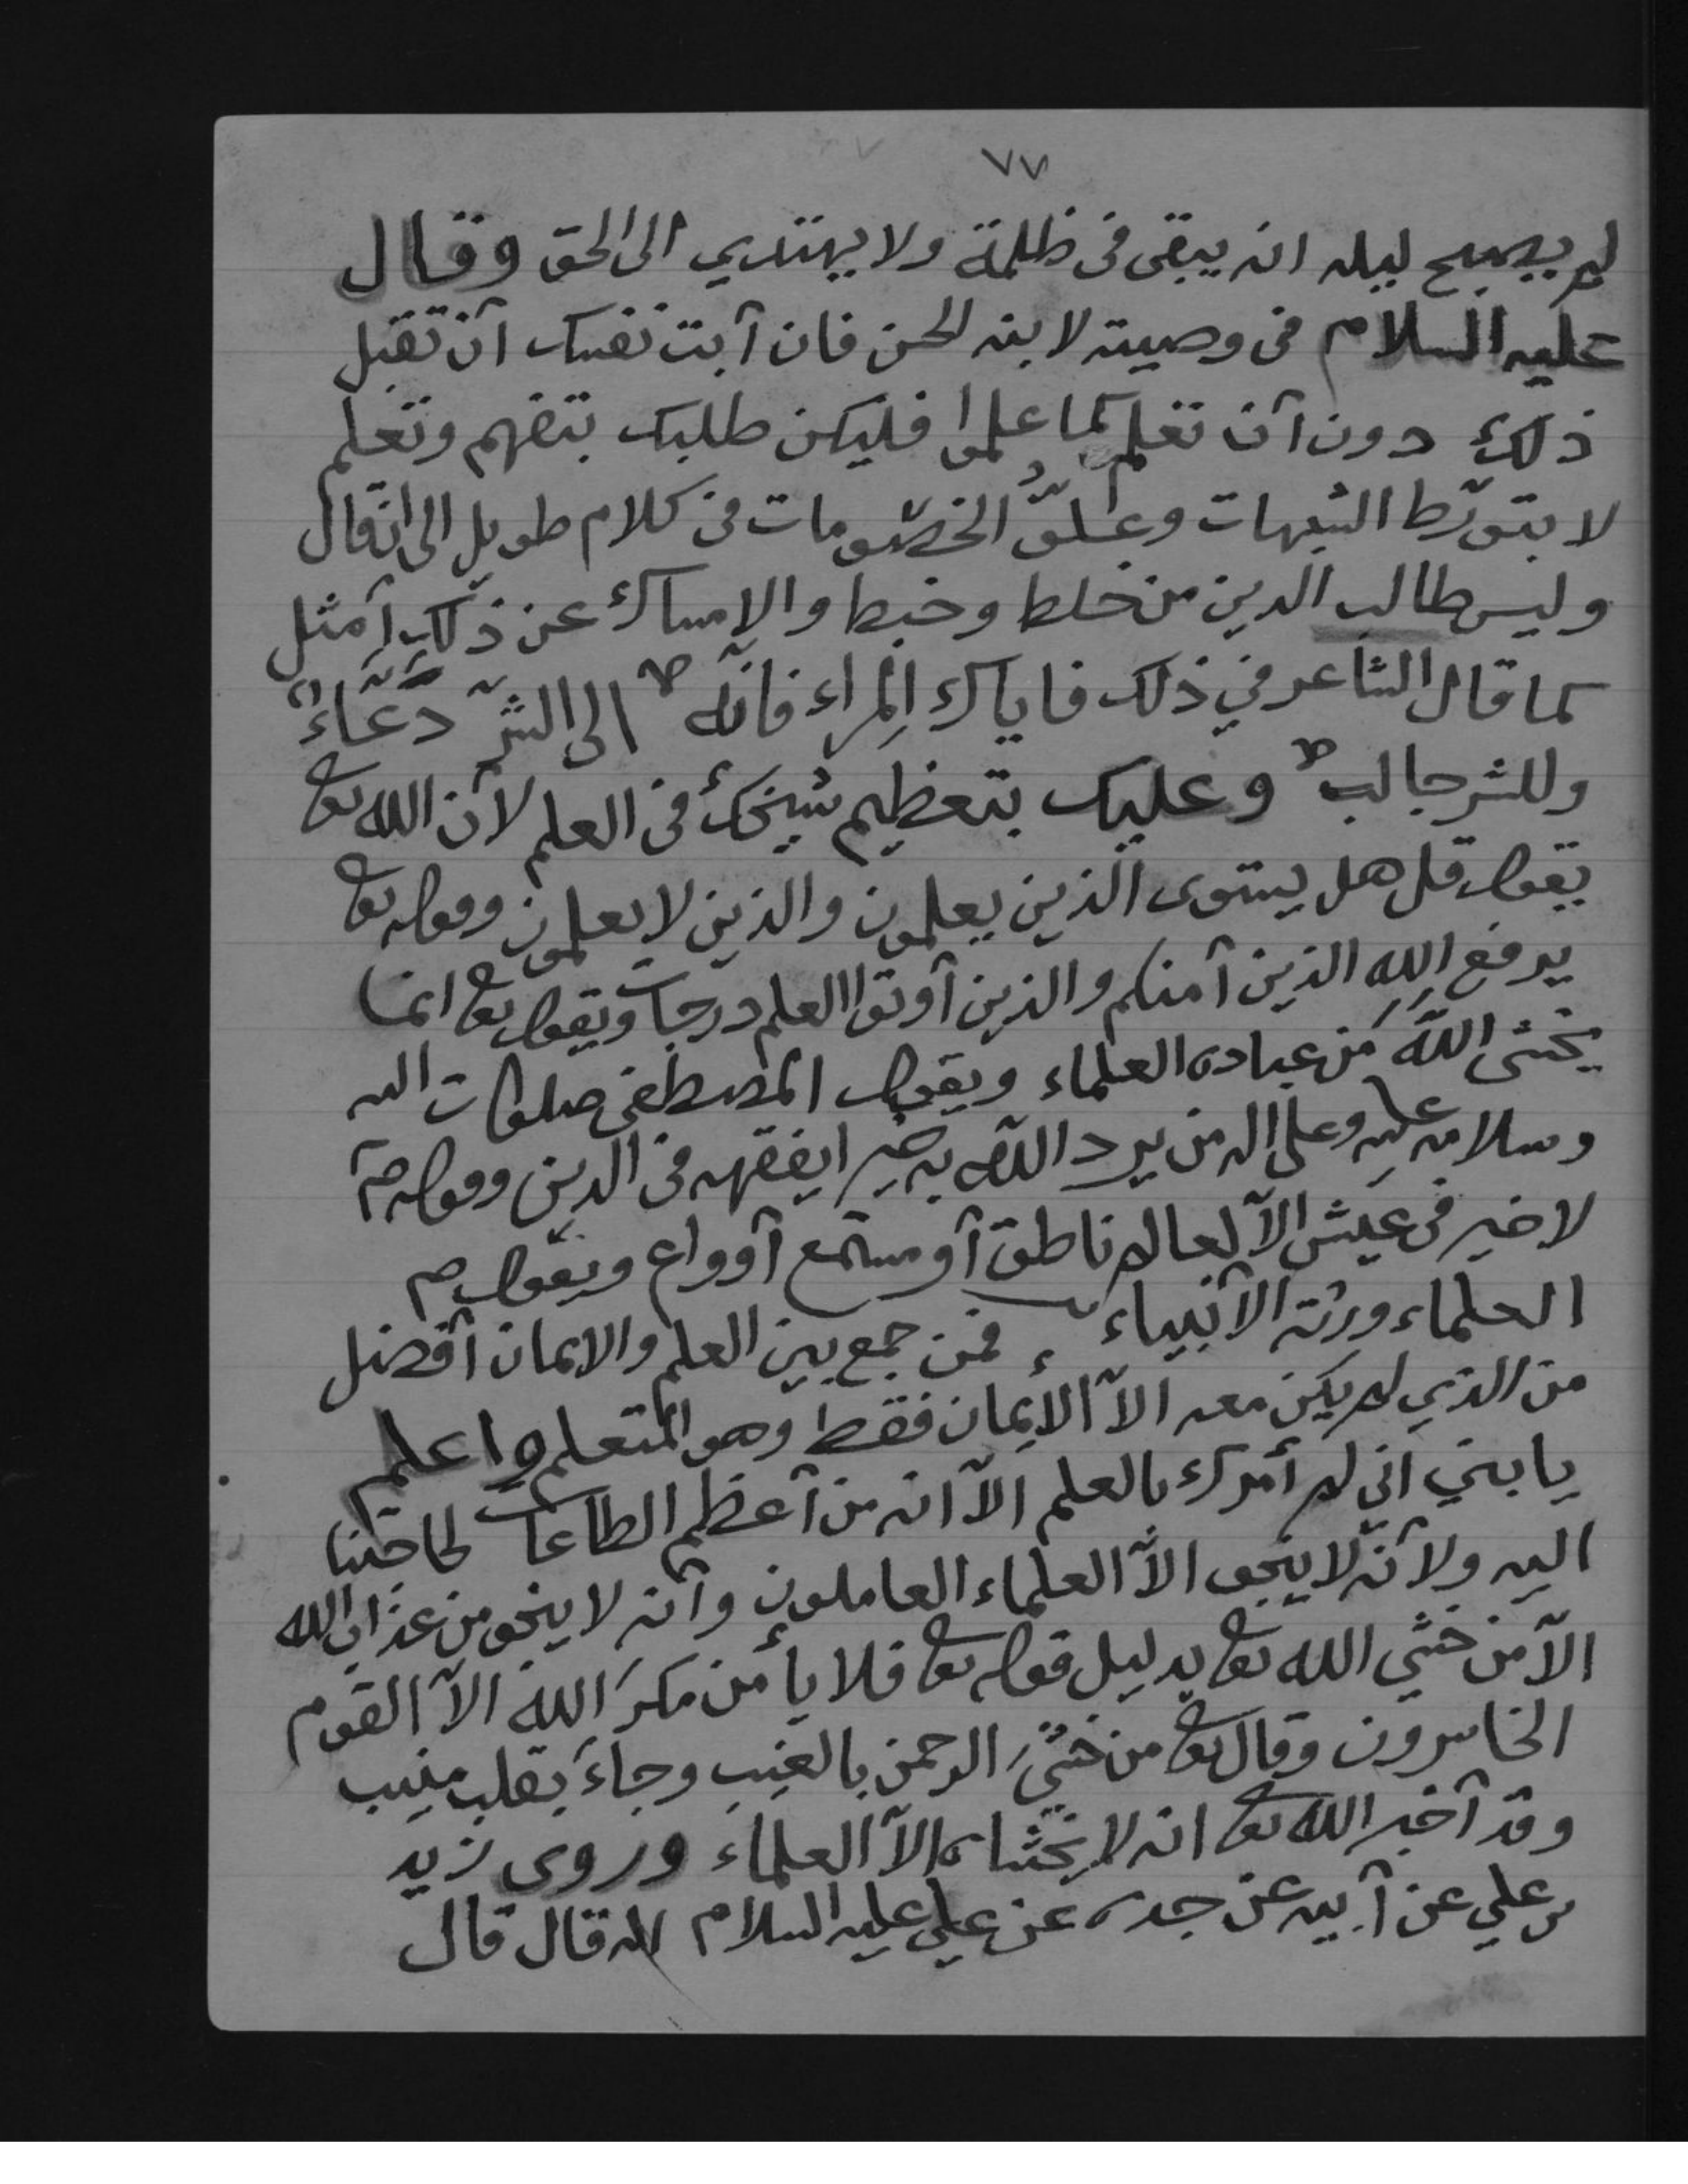 ٧٧
لم يصبح ليله انه يبقى فى ظلمة ولا يهتدي الى الحق وقال
عليه السلام فى وصيته لابنه الحسن فان آبت نفسك آن تقبل
ذلك دون آن تعلم كما علموا فليكن طلبك بتفهم وتعلم
لا بتورّط الشبهات وعلوّ الخصومات فى كلام طويل الى ان قال
وليس طالب الدين من خلط وخبط والامساك عن ذلك آمثل
كما قال الشاعر في ذلك فاياك المِراء فانّه الى الشرّ دَعَّاءٌ
وللشر جالب وعليك بتعظيم شيخك فى العلم لآن الله تعا
يقول قل هل يستوى الذين يعلمون والذين لا يعلمون وقوله تعا
يرفع الله الذين آمنكم والذين آوتوا العلم درجات ويقول تعا انما
يخشى اللَّهَ مَن عباده العلماء ويقول المصطفى صلوات الله
وسلامه عليه وعلى اله من يرد اللّه به خيرا يفقهه فى الدين وقوله صَ
لا خير فى عيش الاّ لعالم ناطق آو مستمع آو واع ويقول ص
العلماء ورثة الآنبياء فمن جمع بين العلم والايمان آفضل
من الذي لم يكن معه الاّ الاِيمان فقط وهو المتعلم واعلم
يا بني اني لم أمرك بالعلم الاّ انه من آعظم الطاعات لحاجتنا
اليه ولآنّه لا ينجو الاّ العلماء العاملون وآنه لا ينجو من عذاب الله
الاّ من خشي الله تعا بدليل قوله تعا فلا يأمن مكرَ الله الاّ القوم
الخاسرون وقال تعا من خشيَ الرحمن بالغيب وجاءَ بقلب منيب
وقد آخبر الله تعا انه لا يخشاه الاّ العلماء وروى زيد
بن علي عن آبيه عن جده عن علي عليه السلام انه قال قال